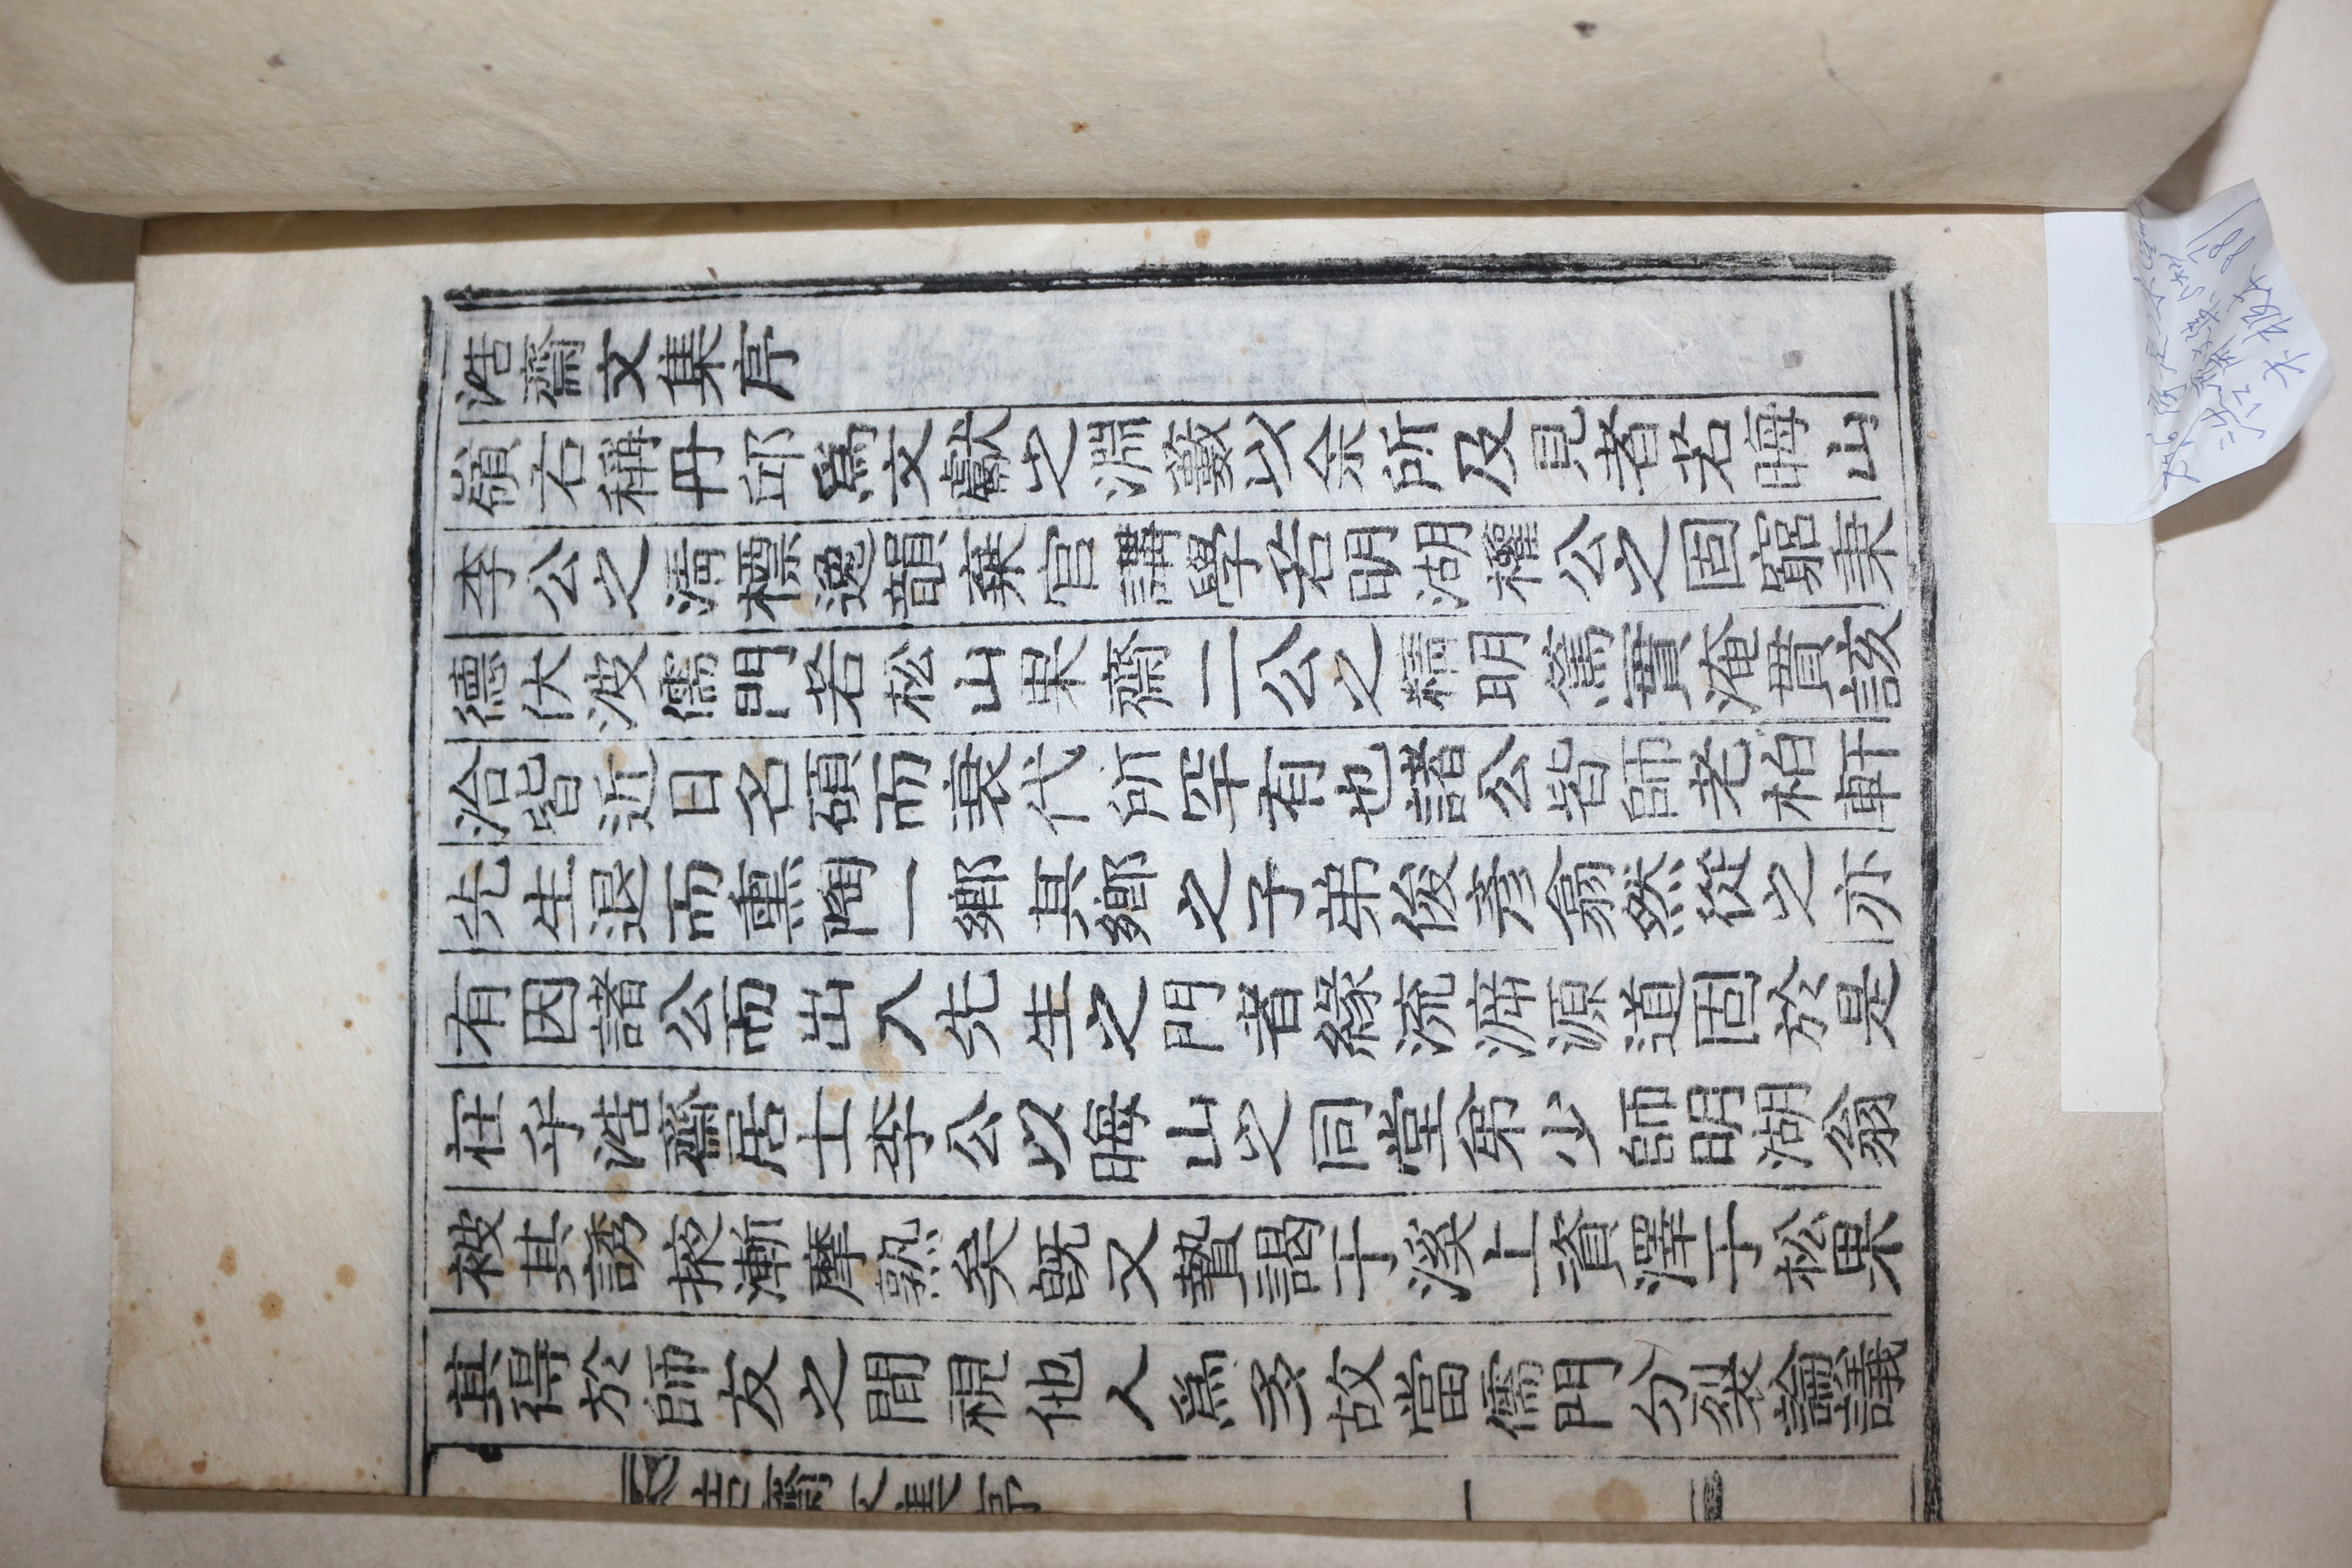 浩齋文集序
嶺右稱丹邱爲文獻之淵藪以余所及見者若晦山
李公之淸標逸韻棄官講學若明湖權公之固窮秉
德伏波儒門若松山果齋二公之精明篤實淹貫該
洽皆近日名碩而衰代所罕有也諸公皆師老柏軒
先生退而熏陶一鄕其鄕之子弟俊彦翕然從之亦
有因諸公而出入先生之門者緣流泝源道固於是
在乎浩齋居士李公以晦山之同堂弟少師明湖翁
被其誘掖漸摩熟矣旣又贄謁于溪上資澤于松果
其得於師友之間視他人爲多故當儒門分裂論議
浩齋文集序 一